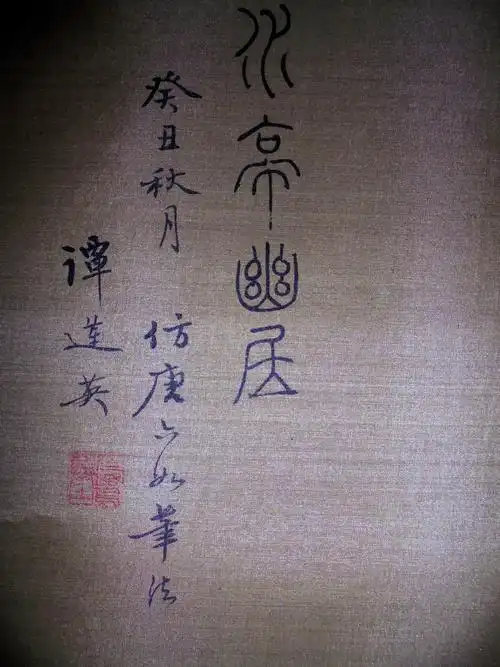 水亭幽居
癸丑秋月 仿唐六如筆法
譚莲英